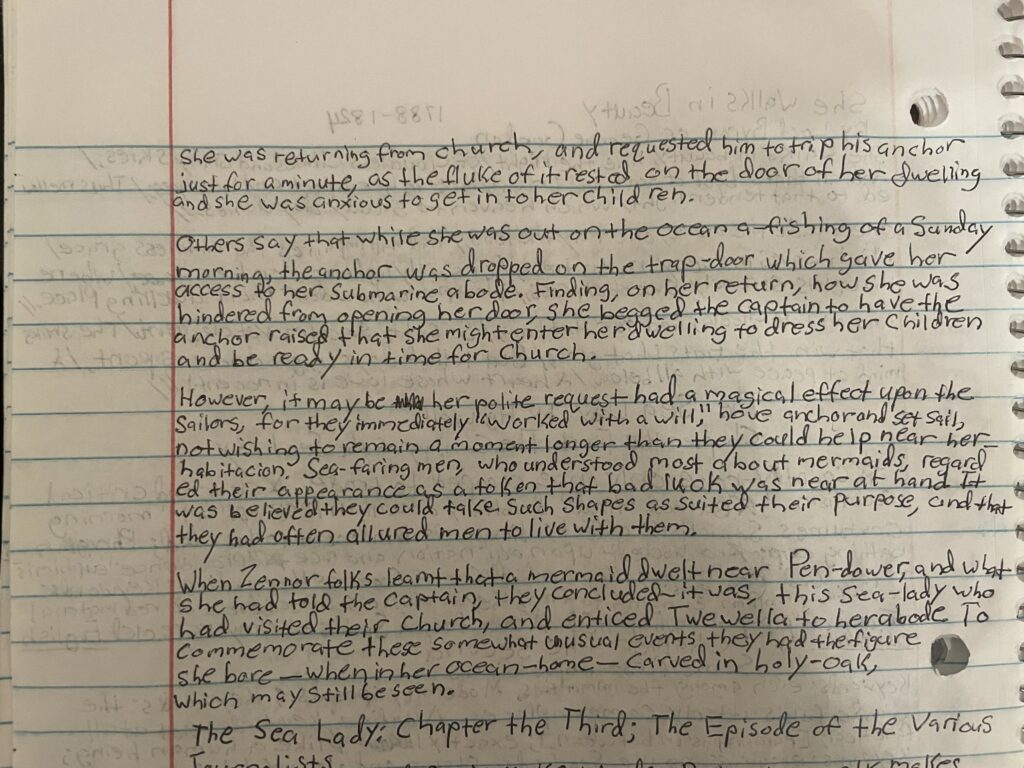 She was returning from church, and requested him to trip his anchor
just for a minute, as the fluke of it rested on the door of her dwelling
and she was anxious to get in to her children.
Others say that while she was out on the ocean a-fishing of a Sunday
morning, the anchor was dropped on the trap-door which gave her
access to her submarine abode. Finding, on her return, how she was
hindered from opening her door, she begged the captain to have the
anchor raised that she might enter her dwelling to dress her children
and be ready in time for church.
However, it may be her polite request had a magical effect upon the
Sailors, for they immediately "worked with a will," hove anchor and set sail,
not wishing to remain a moment longer than they could help near her
habitacion. Sea-faring men, who understood most about mermaids, regard
ed their appearance as a token that bad luck was near at hand It
was believed they could take such shapes as suited their purpose, and that
they had often allured men to live with them.
When Zennor folks learnt that a mermaid dwelt near Pen-dower, and what
she had told the captain, they concluded it was, this sea-lady who
had visited their church, and enticed Twewella to her abode To
commemorate these somewhat unusual events, they had the figure
she bore—when in her ocean-home—carved in holy-oak,
which may still be seen.
The Sea Lady: Chapter the Third; The Episode of the Various
Journalists
She Walks in Beauty 1788-1824